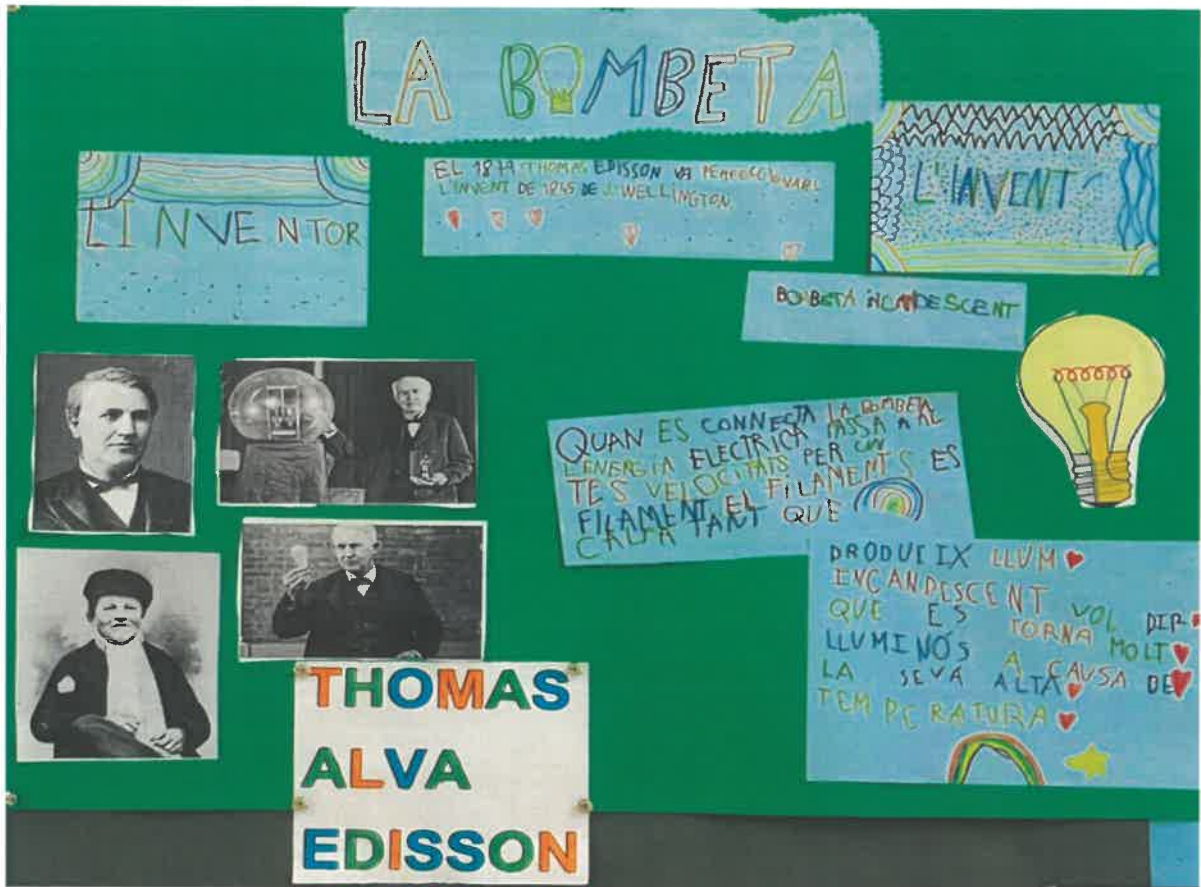 LA BOMBETA
L'INVENTOR
EL 1879 THOMAS EDISSON VA PERFECCIONAR
L'INVENT DE 1845 DE J. WELLINGTON.
L'INVENT
BOMBETA INCANDESCENT
QUAN ES CONNECTA LA BOMBETA
L'ENERGIA ELECTRICA PASSA A AL
TES VELOCITATS PER UN
FILAMENT. EL FILAMENTS ES
CALFA TANT QUE
PRODUEIX LLUM
INCANDESCENT VOL DIR
QUE ES TORNA MOLT
LLUMINÓS A CAUSA DE
LA SEVA ALTA
TEMPERATURA
THOMAS
ALVA
EDISSON